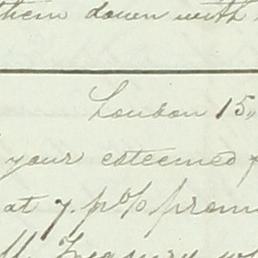 them down with
London 15,
your esteemed
at 7 p% prem
Treasury